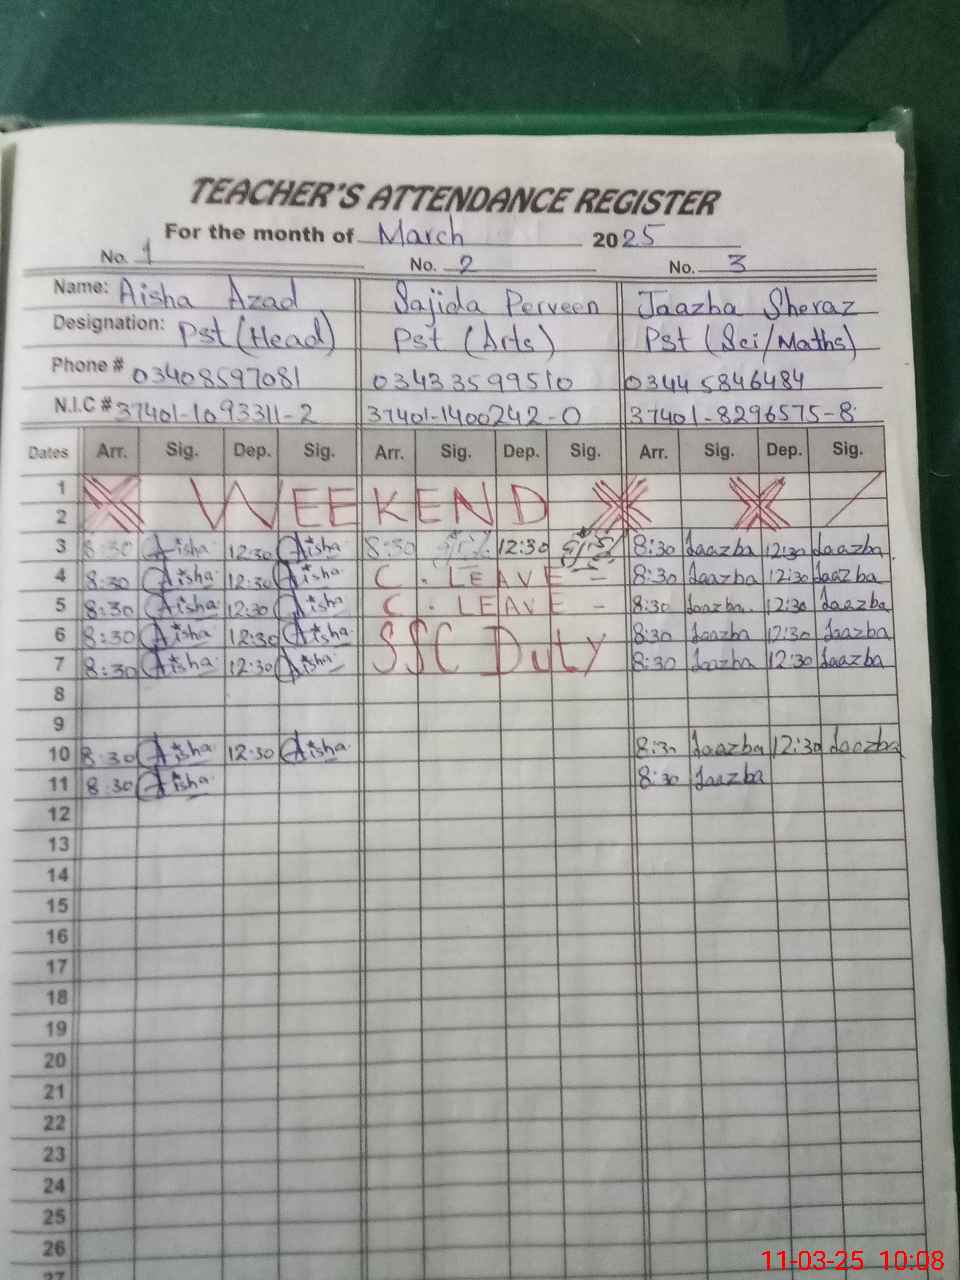 TEACHER'S ATTENDANCE REGISTER
For the month of March 2025
No. 1 No. 2 No. 3
Name: Aisha Azad Sajida Perveen Jaazba Sheraz
Designation: Pst (Head) Pst (Arts) Pst (Sci/Maths)
Phone # 03408597081 03433599510 03445846484
N.I.C # 37401-1093311-2 37401-1400242-0 37401-8296575-8
Dates Arr. Sig. Dep. Sig. Arr. Sig. Dep. Sig. Arr. Sig. Dep. Sig.
1
WEEKEND
2
3 8:30 Aisha 12:30 Aisha 8:30 12:30 8:30 Jaazba 12:30 Jaazba
4 8:30 Aisha 12:30 Aisha C. LEAVE - 8:30 Jaazba 12:30 Jaazba
5 8:30 Aisha 12:30 Aisha C. LEAVE - 8:30 Jaazba 12:30 Jaazba
6 8:30 Aisha 12:30 Aisha SSC Duty 8:30 Jaazba 12:30 Jaazba
7 8:30 Aisha 12:30 Aisha 8:30 Jaazba 12:30 Jaazba
8
9
10 8:30 Aisha 12:30 Aisha 8:30 Jaazba 12:30 Jaazba
11 8:30 Aisha 8:30 Jaazba
12
13
14
15
16
17
18
19
20
21
22
23
24
25
26
27
11-03-25 10:08